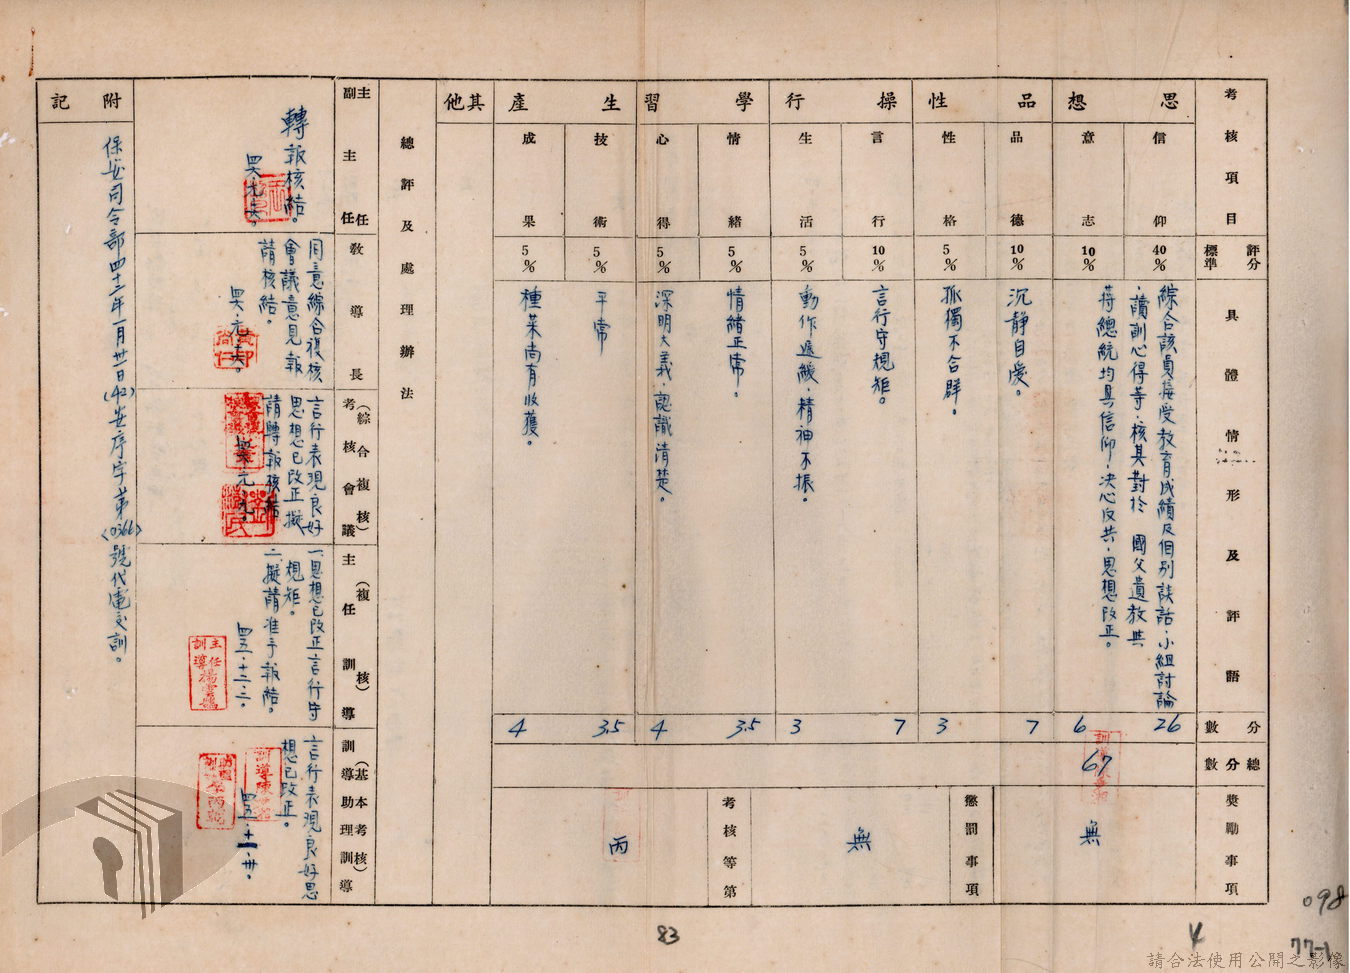 考核項目
評分標準
具體情形及評語
分數
總分數
獎勵事項
思想
信仰
40%
綜合該員接受教育成績及個別談話、小組討論
、讀訓心得等、核其對於 國父遺教與
蔣總統均具信仰、決心反共、思想改正。
26
意志
10%
6
品性
品德
10%
沉靜自愛。
7
性格
5%
孤獨不合群。
3
操行
言行
10%
言行守規矩。
7
生活
5%
動作遲緩、精神不振。
3
學習
情緒
5%
情緒正常。
3.5
心得
5%
深明大義、認識清楚。
4
生產
技術
5%
平常
3.5
成果
5%
種菜尚有收獲。
4
67
無
懲罰事項
無
考核等第
丙
其他
總評及處理辦法
主任
副主任
轉報核結。
教導長
同意綜合復核
會議意見報
請核結。
(綜合複核)
考核會議
言行表現良好
思想已改正擬
請轉報核結
(複核)
主任訓導
一、思想已改正言行守
規矩。
二、擬請准予報結。
四五、十二、二。
主任
訓導
(基本考核)
訓導助理訓導
言行表現良好思
想已改正。
附記
保安司令部四十二年一月廿一日(42)安序字第(0366)號代電交訓。
83
4
098
77-1
請合法使用公開之影像